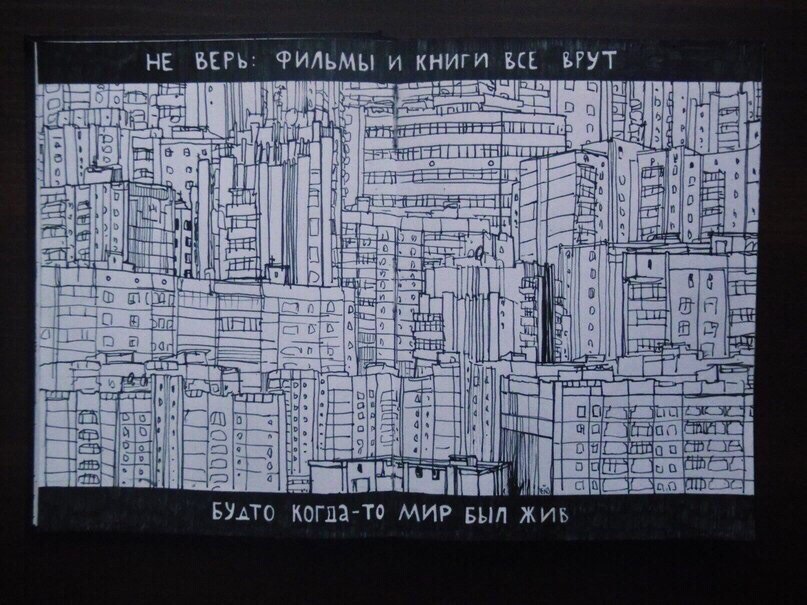 НЕ ВЕРЬ: ФИЛЬМЫ И КНИГИ ВСЕ ВРУТ
БУДТО КОГДА-ТО МИР БЫЛ ЖИВ